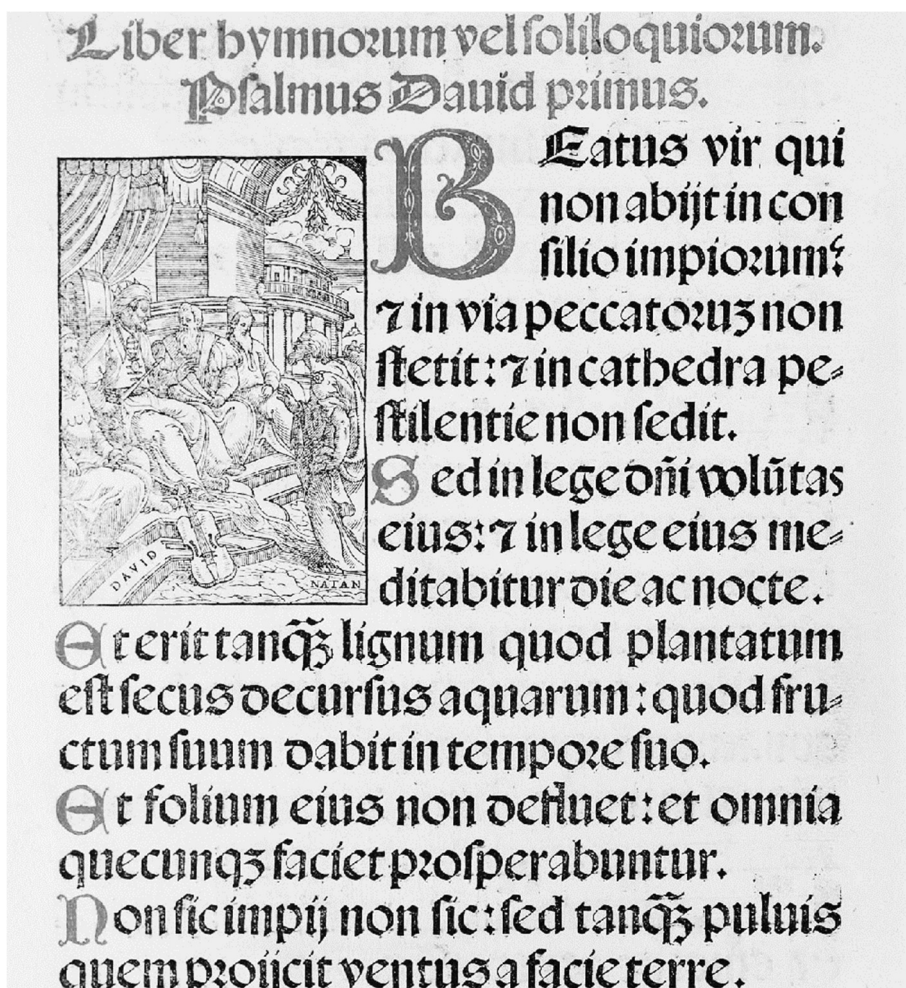 Liber hymnorum vel soliloquiorum.
Psalmus Dauid primus.
BEatus vir qui
non abijt in con
silio impiorum:
⁊ in via peccatoruʒ non
stetit: ⁊ in cathedra pe⸗
stilentie non sedit.
Sed in lege dn̄i volūtas
eius: ⁊ in lege eius me⸗
ditabitur die ac nocte.
Et erit tanq̄ʒ lignum quod plantatum
est secus decursus aquarum: quod fru⸗
ctum suum dabit in tempore suo.
Et folium eius non defluet: et omnia
quecunqʒ faciet prosperabuntur.
Non sic impij non sic: sed tanq̄ʒ puluis
quem proijcit ventus a facie terre.
DAVID
NATAN